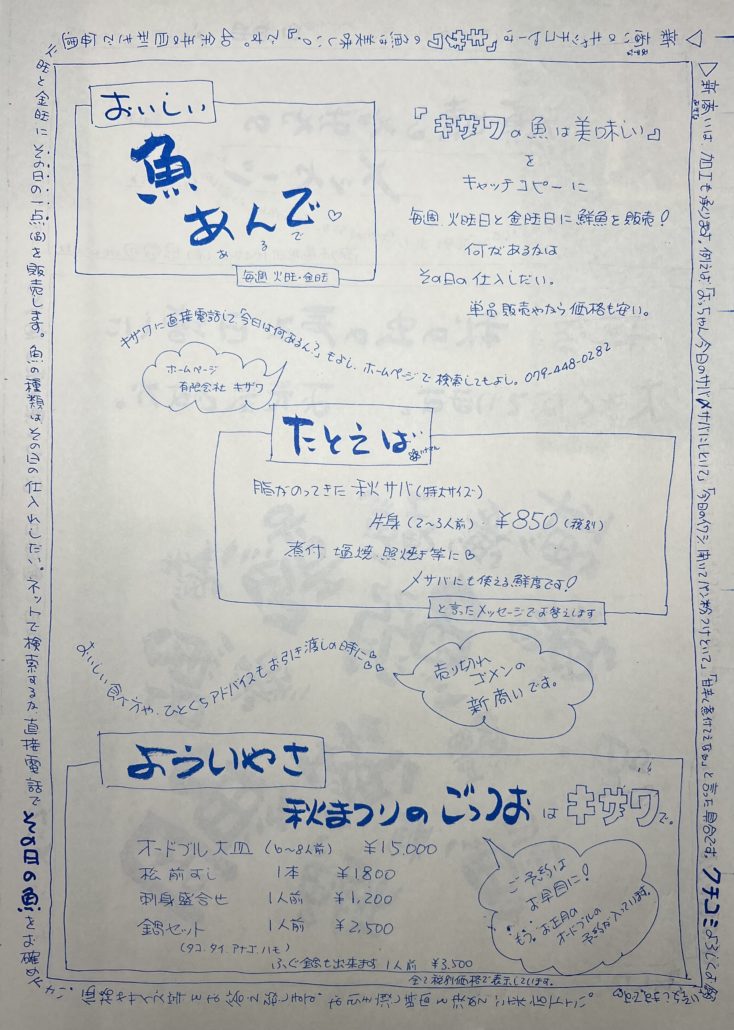 おいしい
魚
あんで♡
あるで
毎週 火旺・金旺
『キサワの魚は美味しい』
を
キャッチコピーに
毎週 火旺日と金旺日に鮮魚を販売!
何があるかは
その日の仕入しだい。
単品販売やから価格も安い。
キサワに直接電話して「今日は何あるん?」もよし、ホームページで検索してもよし。079-448-0282
ホームページ
有限会社 キサワ
たとえば…
脂がのってきた 秋サバ(特大サイズ)
片身(2〜3人前)・¥850(税別)
煮付 塩焼 照焼き等に
〆サバにも使える鮮度です!
と言ったメッセージでお答えします
おいしい食べ方や、ひとくちアドバイスもお引き渡しの時に
売り切れ
ゴメンの
新商いです。
よういやさ
秋まつりのごっつおはキサワで。
オードブル大皿(6〜8人前) ¥15,000
松前ずし 1本 ¥1800
刺身盛合せ 1人前 ¥1,200
鍋セット 1人前 ¥2,500
(タコ.タイ.アナゴ.ハモ)
ふぐ鍋も出来ます 1人前 ¥3,500
全て税別価格で表示しています。
ご予約は
お早目に!
もう、お正月の
オードブルの
予約が入っています。
▷新商いは、加工も承ります。例えば「よっちゃん今日のサバ〆サバにしといて」「今日のイワシ 開いてパン粉つけといて」「甘辛く煮付てえなぁ」と言った具合です。クチコミよろしく
旺と金旺に その日の一点(品)を販売します。魚の種類はその日の仕入れしだい。ネットで検索するか 直接電話で その日の魚をお確め
▷新商いのキャッチコピーは『キサワの魚は美味しい。』です。40余年の目利きで